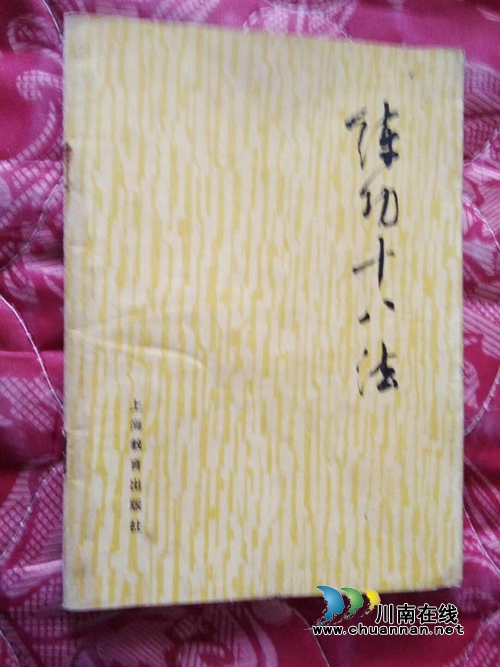 练功十八法
上海教育出版社
川南在线
www.chuannan.net